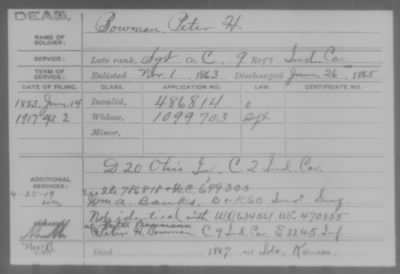 DEAD.
NAME OF SOLDIER: Bowman Peter H.
SERVICE: Late rank, Sgt Co. C, 9 Reg't Ind Cav
TERM OF SERVICE: Enlisted Nov. 1, 1863 Discharged June 26, 1865
DATE OF FILING. CLASS. APPLICATION NO. LAW. CERTIFICATE NO.
1883, June 14 Invalid, 486814
1917 2 Widow, 1099703
Minor,
ADDITIONAL SERVICES: D 20 Ohio C 2 Ind Cav.
4-25-19
Wm A. Banks, K 60 Ind
Not identical with
Peter H. Bowman C 9 Ind Cav
Died, 1887 at Ida, Kansas.